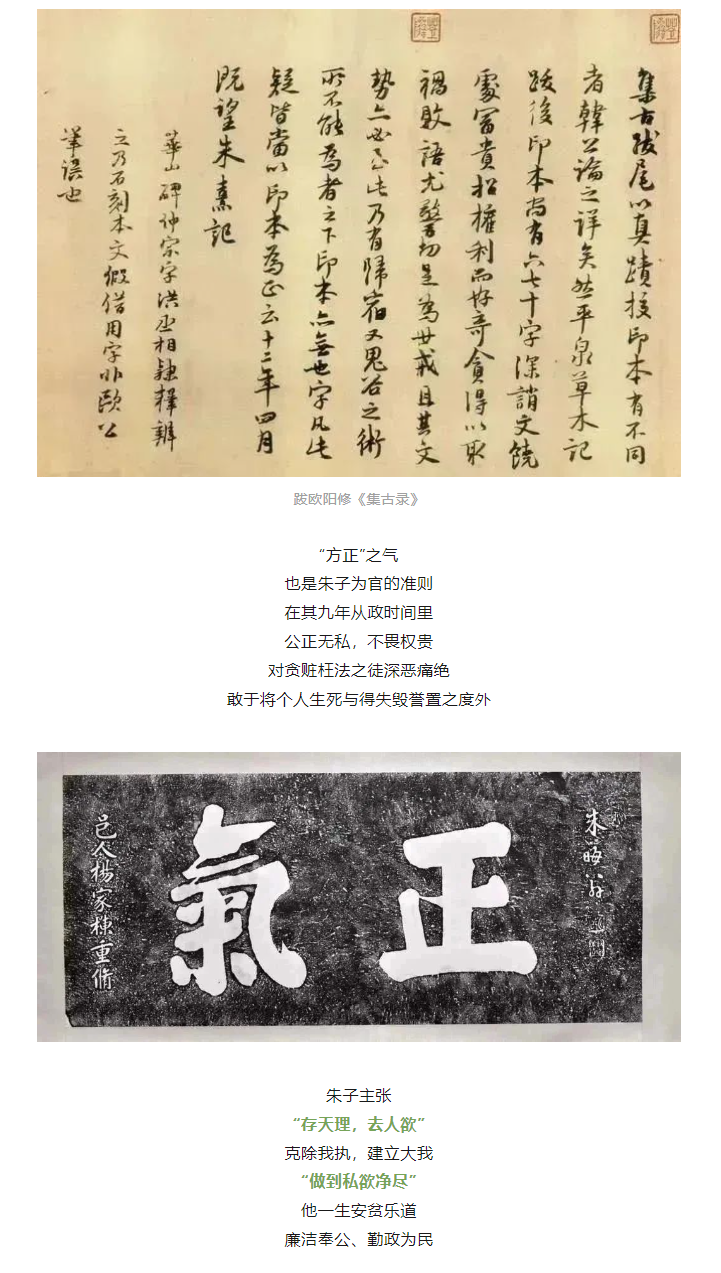 集古跋尾以真蹟挍印本有不同
者韓公論之詳矣然平泉草木記
跋後印本尚有六七十字深誚文饒
處富貴招權利而好奇貪得以取
禍敗語尤警切足為世戒且其文
勢亦必至此乃有歸宿又鬼谷之術
所不能為者之下印本亦無也字凡此
疑皆當以印本為正云十二年四月
既望朱熹記
華山碑仲宗字洪丞相隸釋辨
之乃石刻本文假借用字非歐公
筆誤也
跋欧阳修《集古录》
“方正”之气
也是朱子为官的准则
在其九年从政时间里
公正无私，不畏权贵
对贪赃枉法之徒深恶痛绝
敢于将个人生死与得失毁誉置之度外
朱晦翁
正氣
邑人楊家棟重脩
朱子主张
“存天理，去人欲”
克除我执，建立大我
“做到私欲净尽”
他一生安贫乐道
廉洁奉公、勤政为民